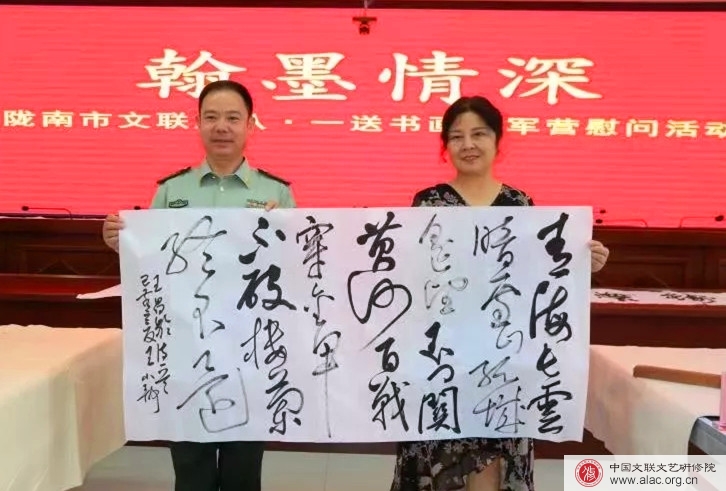 翰墨情深
陇南市文联 人·一送书画 军营慰问活动
青海长雲
暗雪山孤城
遥望玉门関
黄沙百戰
穿金甲
不破楼兰
终不还
王昌龄诗
中国文联文艺研修院
www.alac.org.cn